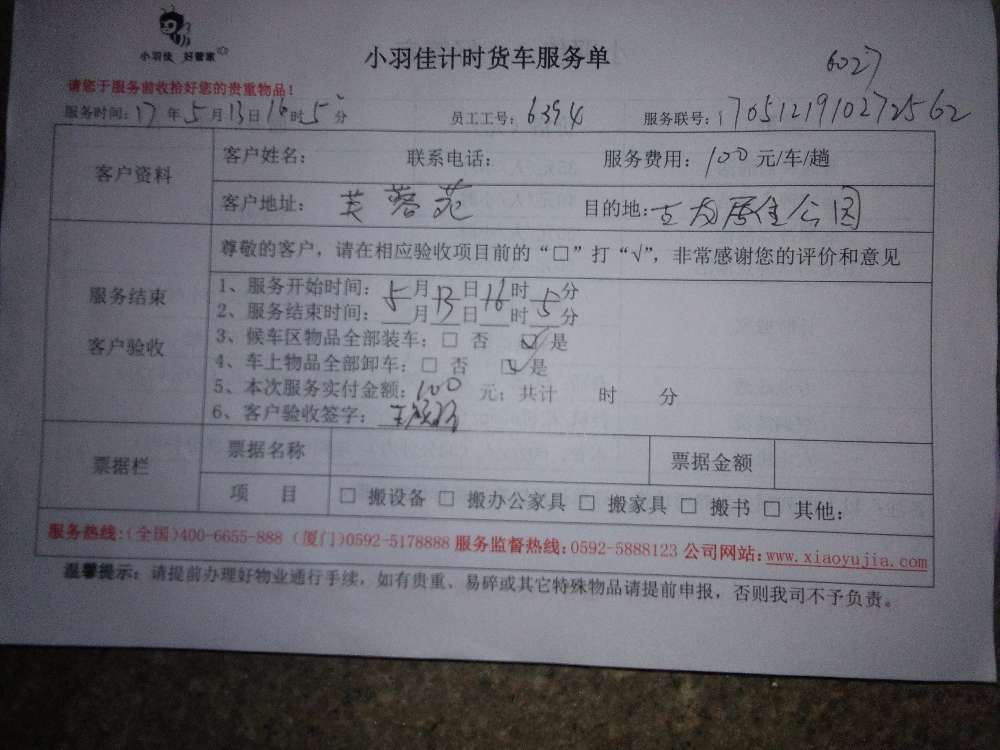 小羽佳 好管家
小羽佳计时货车服务单
6027
请您于服务前收拾好您的贵重物品！
服务时间：17年5月13日16时5分 员工工号：6394 服务联号：170512191027​2562
客户资料
客户姓名： 联系电话： 服务费用：100元/车/趟
客户地址：芙蓉苑 目的地：古龙居住公园
服务结束
客户验收
尊敬的客户，请在相应验收项目前的“□”打“√”，非常感谢您的评价和意见
1、服务开始时间：5月13日16时5分
2、服务结束时间：__月__日__时__分
3、候车区物品全部装车：□ 否 ☑是
4、车上物品全部卸车：□ 否 ☑是
5、本次服务实付金额：100 元；共计 时 分
6、客户验收签字：
票据栏
票据名称 票据金额
项 目 □ 搬设备 □ 搬办公家具 □ 搬家具 □ 搬书 □ 其他：
服务热线：(全国)400-6655-888 (厦门)0592-5178888 服务监督热线：0592-5888123 公司网站：www.xiaoyujia.com
温馨提示：请提前办理好物业通行手续，如有贵重、易碎或其它特殊物品请提前申报，否则我司不予负责。